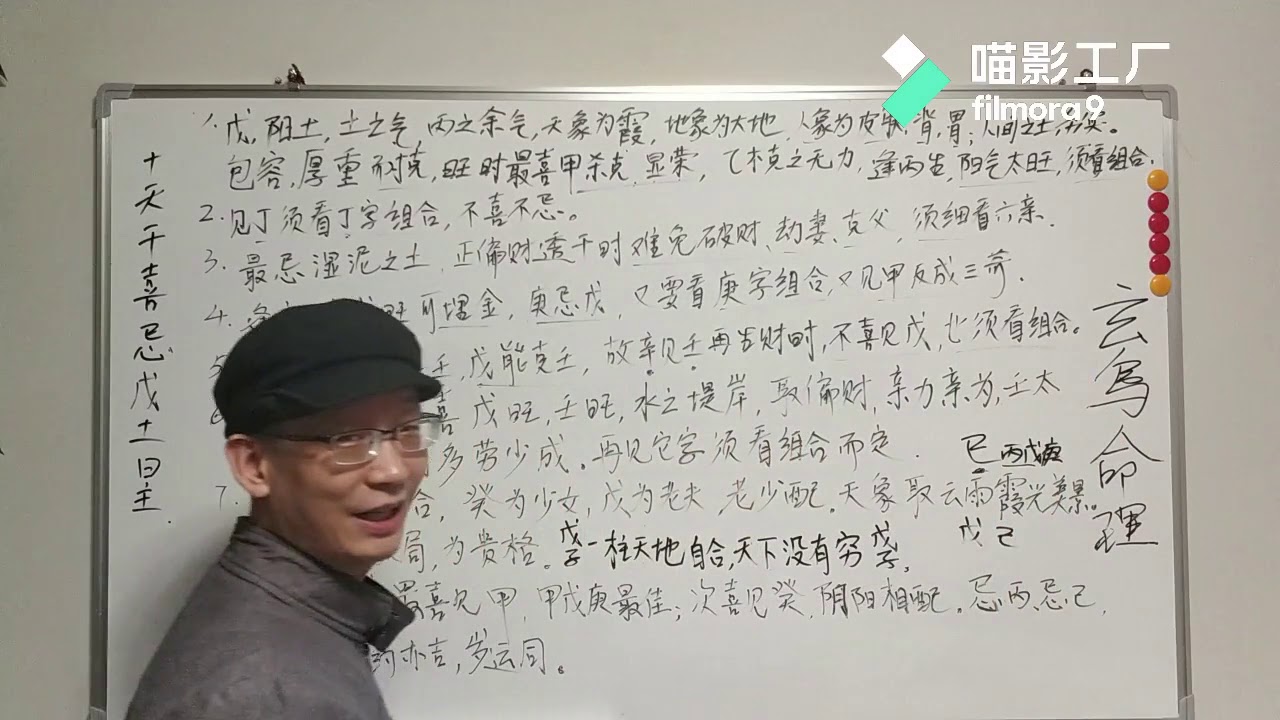 喵影工厂
filmora9
十天干喜忌戊土日主.
1.戊,阳土,土之气,丙之余气,天象为霞,地象为大地,人象为皮肤,背,胃;人间之土,
包容,厚重耐克,旺时最喜甲杀克,显荣,乙木克之无力,逢丙生,阳气太旺,须看组合.
2.见丁须看丁字组合,不喜不忌。
3.最忌湿泥之土,正偏财透干时难免破财、劫妻、克父,须细看六亲.
4. 可埋金,庚忌戊,又要看庚字组合,又见甲反成三奇.
壬,戊能克壬,故辛见壬再生财时,不喜见戊,也须看组合。
喜戊旺,壬旺,水之堤岸,取偏财,亲力亲为,壬太
多劳少成.再见它字须看组合而定.
巳 丙戊庚
7. 合,癸为少女,戊为老夫,老少配.天象取云雨霞光美景。
局,为贵格。戊子一柱天地自合,天下没有穷戊子,
戊己
最喜见甲,甲戊庚最佳;次喜见癸,阴阳相配.忌丙、忌己,
亦吉,岁运同。
玄鸟命理